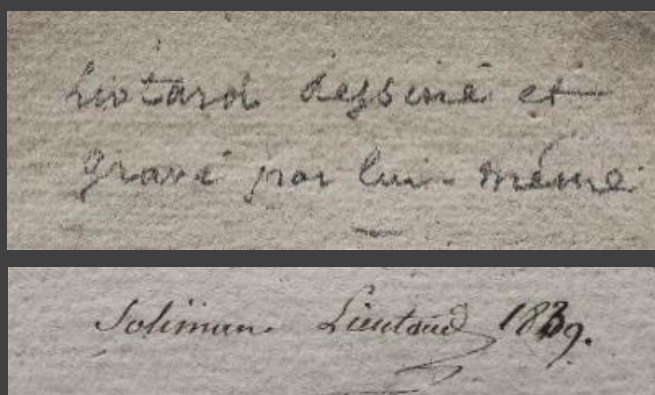 Liotard dessiné et
gravé par lui-même
Soliman Lieutaud 1839.